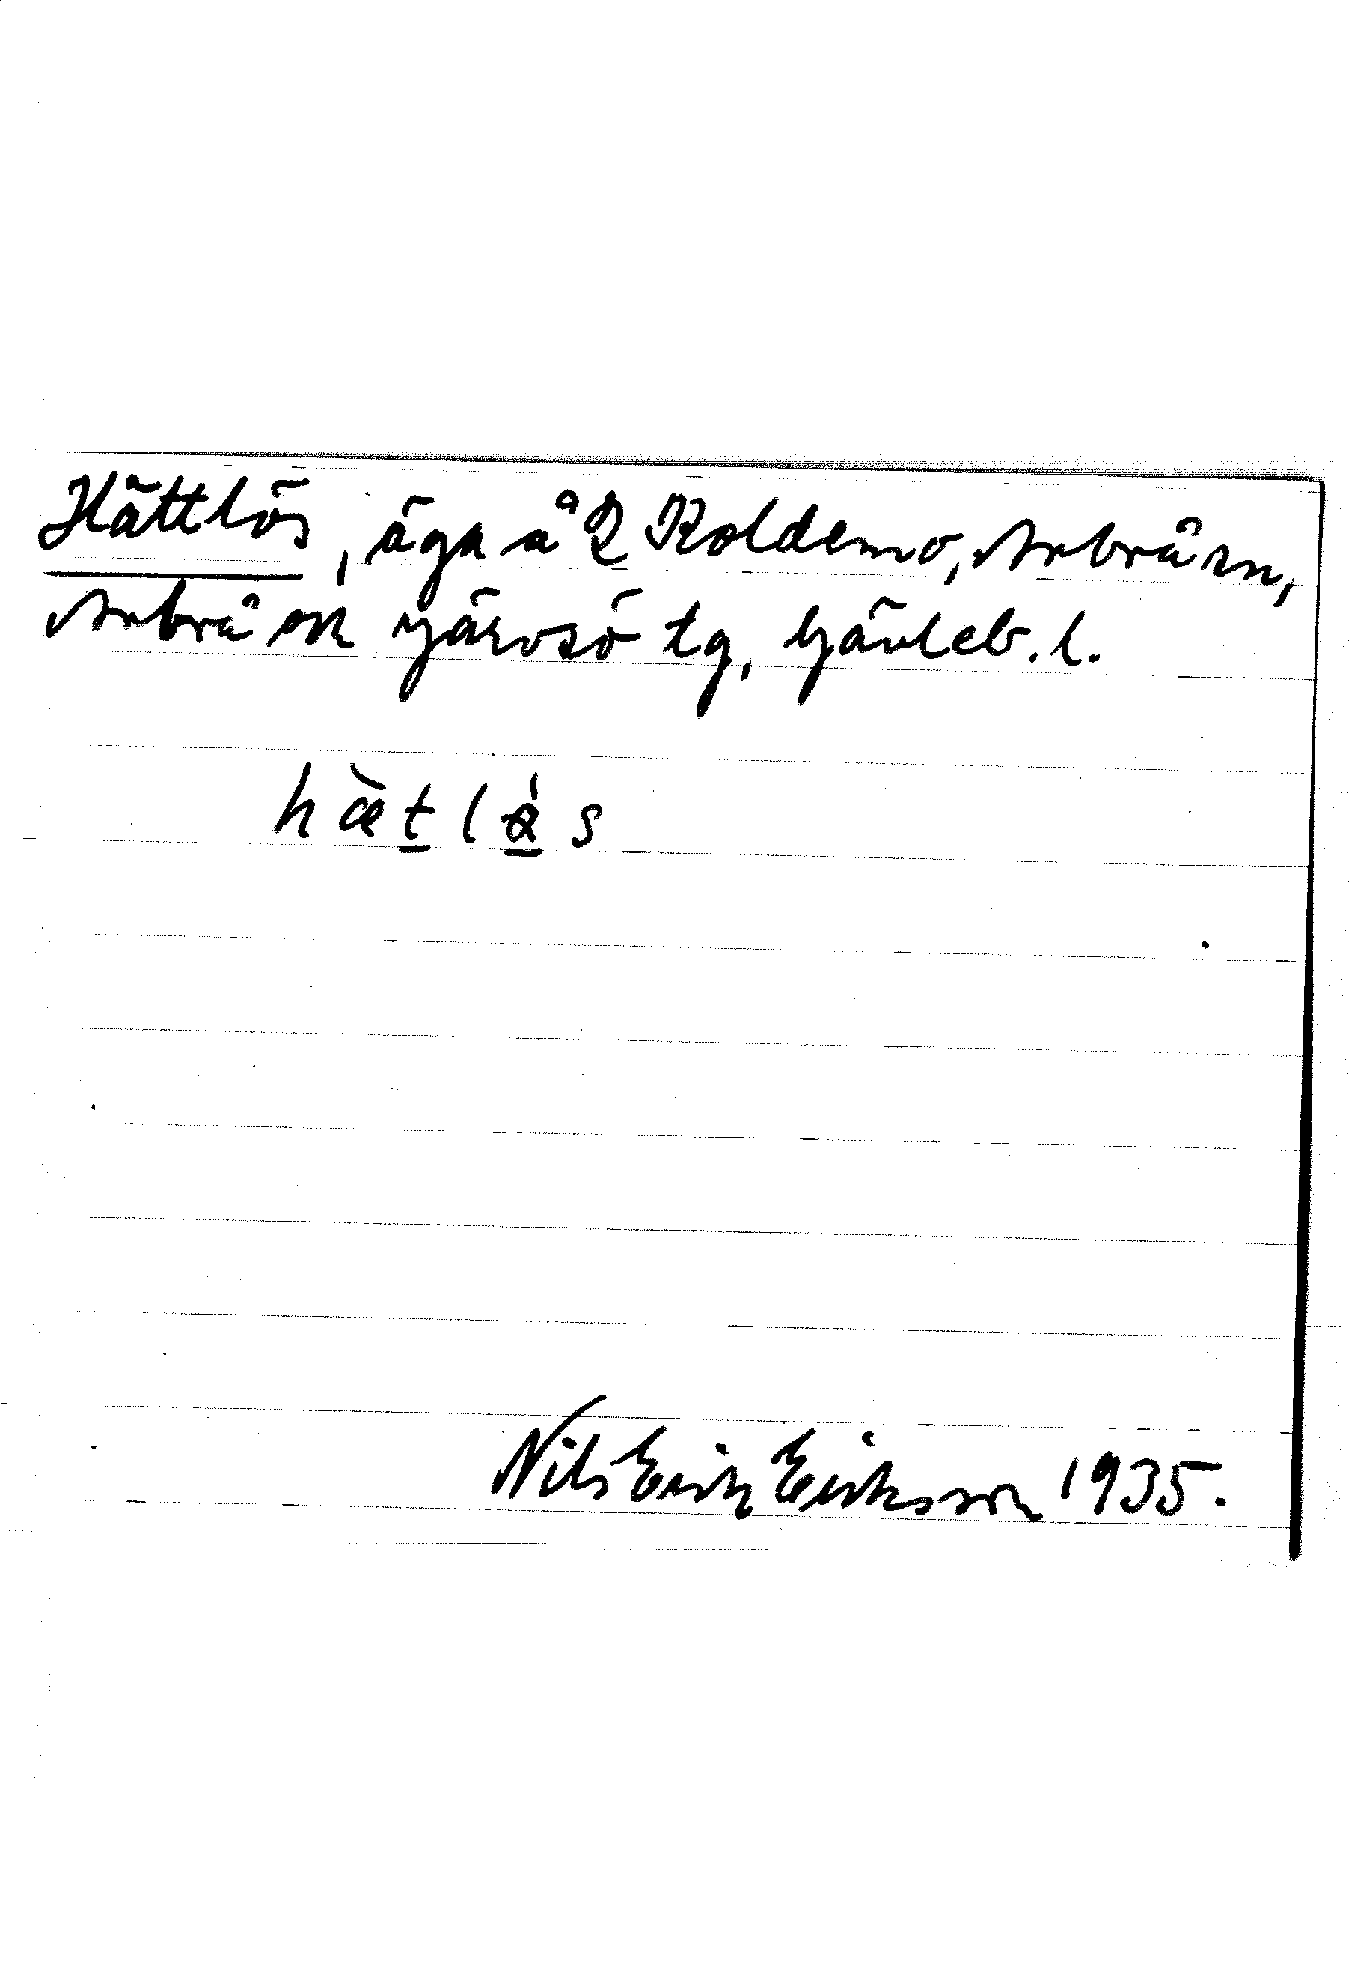 Hättlös, äga å 2 Koldemo, Arbrå sn,
Arbrå ok Järvsö tg, Gävleb. l.
hæ̀t̠lα̠̍s
Nils Erik Eriksson 1935.